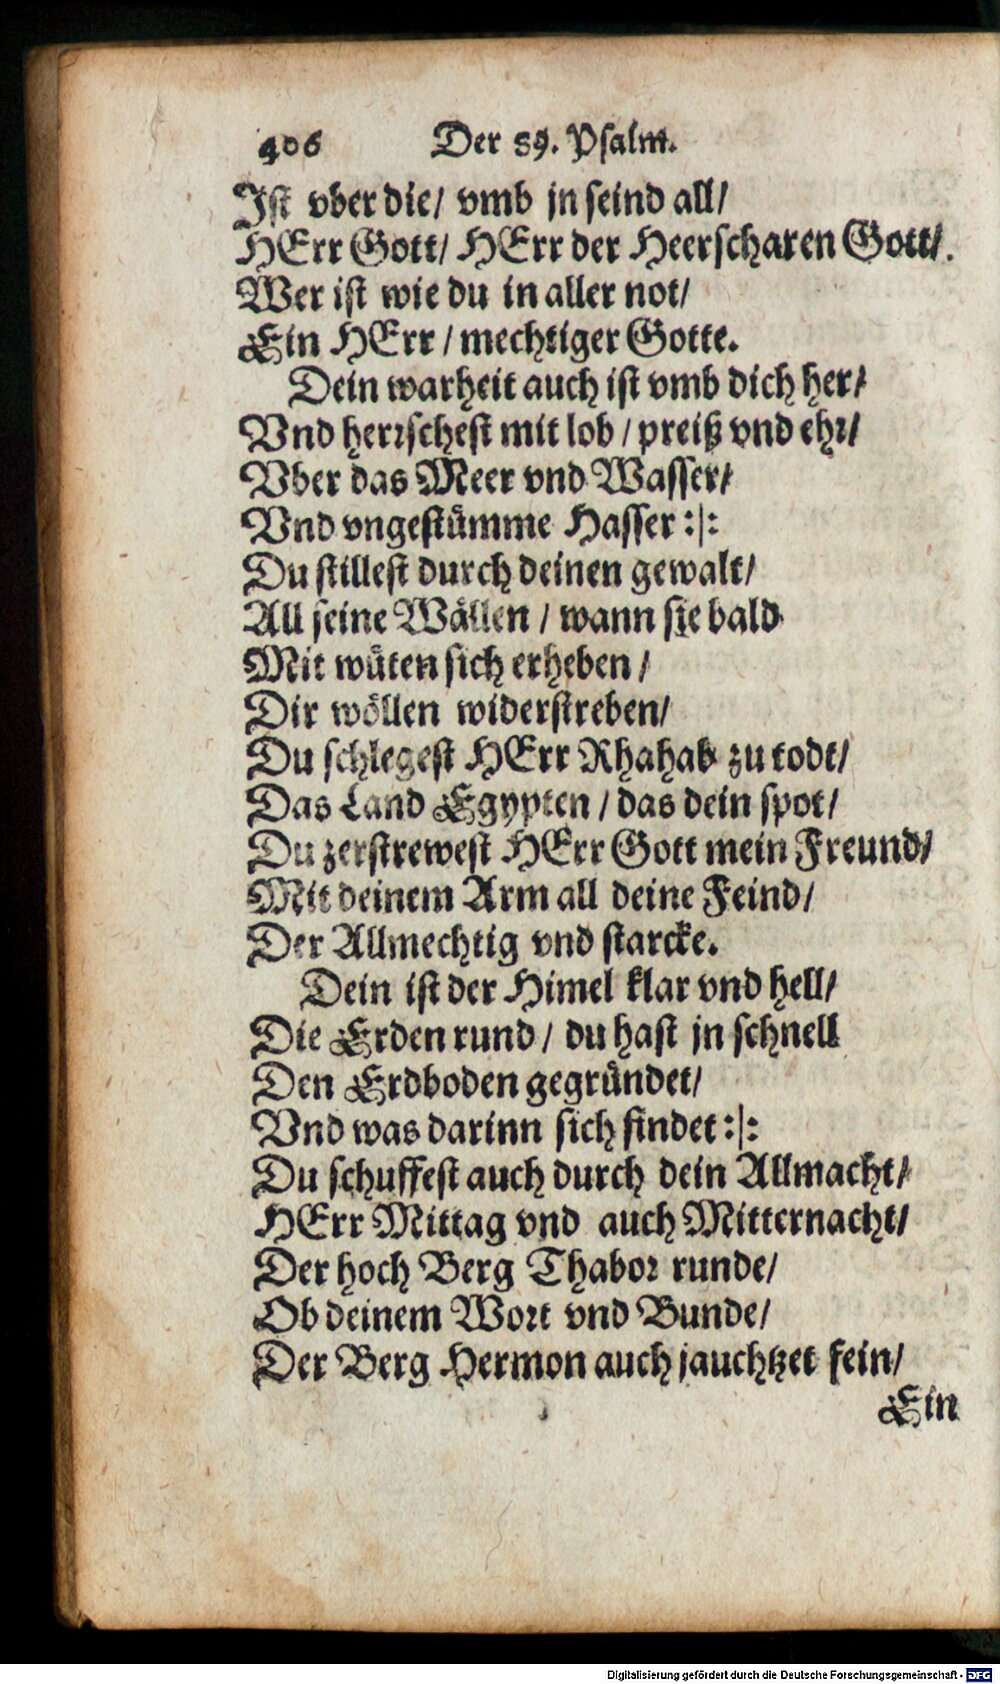 406 Der 89. Psalm.
Ist vber die/ vmb jn seind all/
HErr Gott/ HErr der Heerscharen Gott/.
Wer ist wie du in aller not/
Ein HErr / mechtiger Gotte.
Dein warheit auch ist vmb dich her/
Vnd herrschest mit lob / preiß vnd ehr/
Vber das Meer vnd Wasser/
Vnd vngestümme Hasser :|:
Du stillest durch deinen gewalt/
All seine Wällen / wann sie bald
Mit wüten sich erheben /
Dir wöllen widerstreben/
Du schlegest HErr Rhahab zu todt/
Das Land Egypten / das dein spot/
Du zerstrewest HErr Gott mein Freund/
Mit deinem Arm all deine Feind/
Der Allmechtig vnd starcke.
Dein ist der Himel klar vnd hell/
Die Erden rund / du hast jn schnell
Den Erdboden gegründet/
Vnd was darinn sich findet :|:
Du schuffest auch durch dein Allmacht/
HErr Mittag vnd auch Mitternacht/
Der hoch Berg Thabor runde/
Ob deinem Wort vnd Bunde/
Der Berg Hermon auch jauchtzet fein/
Ein
Digitalisierung gefördert durch die Deutsche Forschungsgemeinschaft - DFG